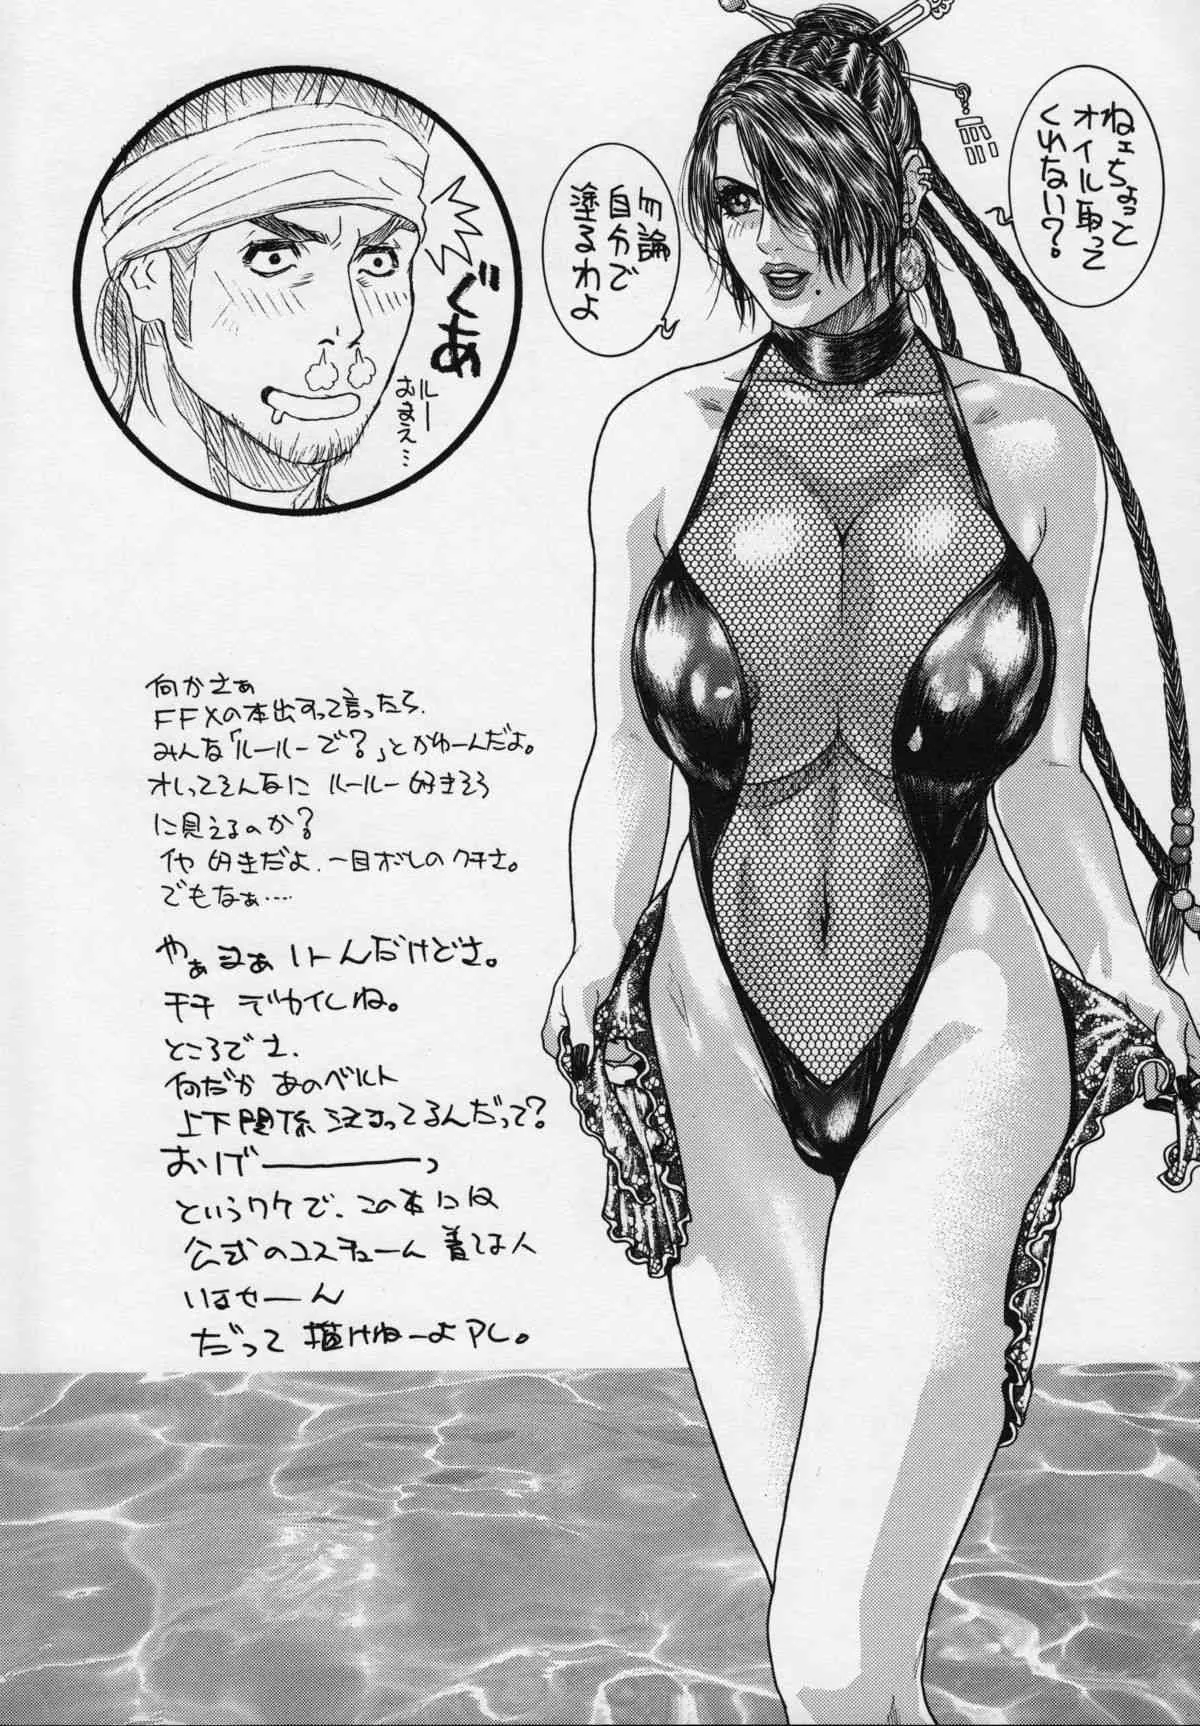 ねェちょっと
オイル取って
くれない?
勿論
自分で
塗るわよ
ぐあ
ルー
おまえ…
何かさぁ
FFXの本出すって言ったら、
みんな「ルールーで?」とかゆーんだよ。
オレってそんなに ルールー好きそう
に見えるのか?
イヤ 好きだよ、一目ボレのクチさ。
でもなぁ……
やぁ まぁ いーんだけどさ。
チチ デカイしね。
ところでさ、
何だか あのベルト
上下関係 決まってるんだって?
おりげーーーっ
というワケで、この本には
公式のコスチューム 着ては人
いませーん
だって 描けねーよアレ。